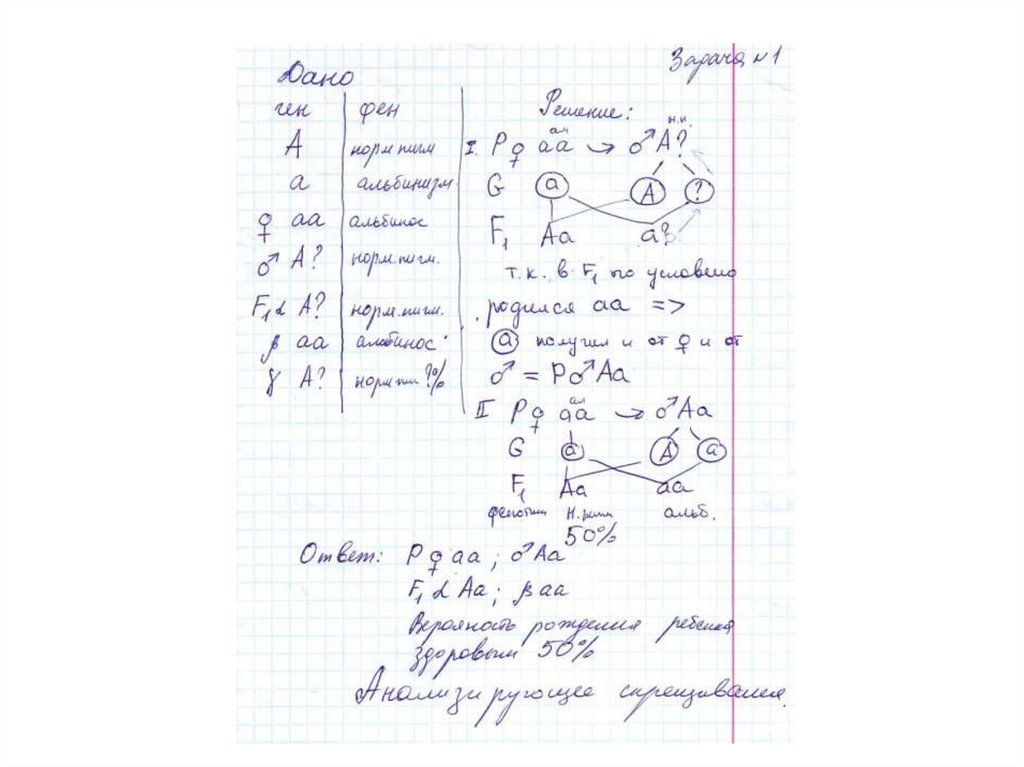 Задача №1
Дано
ген фен
A норм пигм
a альбинизм
♀ aa альбинос
♂ A? норм.пигм.
F₁ α A? норм.пигм.
β aa альбинос
γ A? норм пиг ?%
Решение:
ал н.п.
I. P ♀ aa → ♂ A?
G a A ?
F₁ Aa a?
т.к. в F₁ по условию
родился aa =>
a получил и от ♀ и от
♂ = P♂Aa
ал
II P ♀ aa → ♂Aa
G a A a
F₁ Aa aa
фенотип н.пигм альб.
50%
Ответ: P ♀ aa; ♂Aa
F₁ α Aa; β aa
Вероятность рождения ребенка
здоровым 50%
Анализирующее скрещивание.